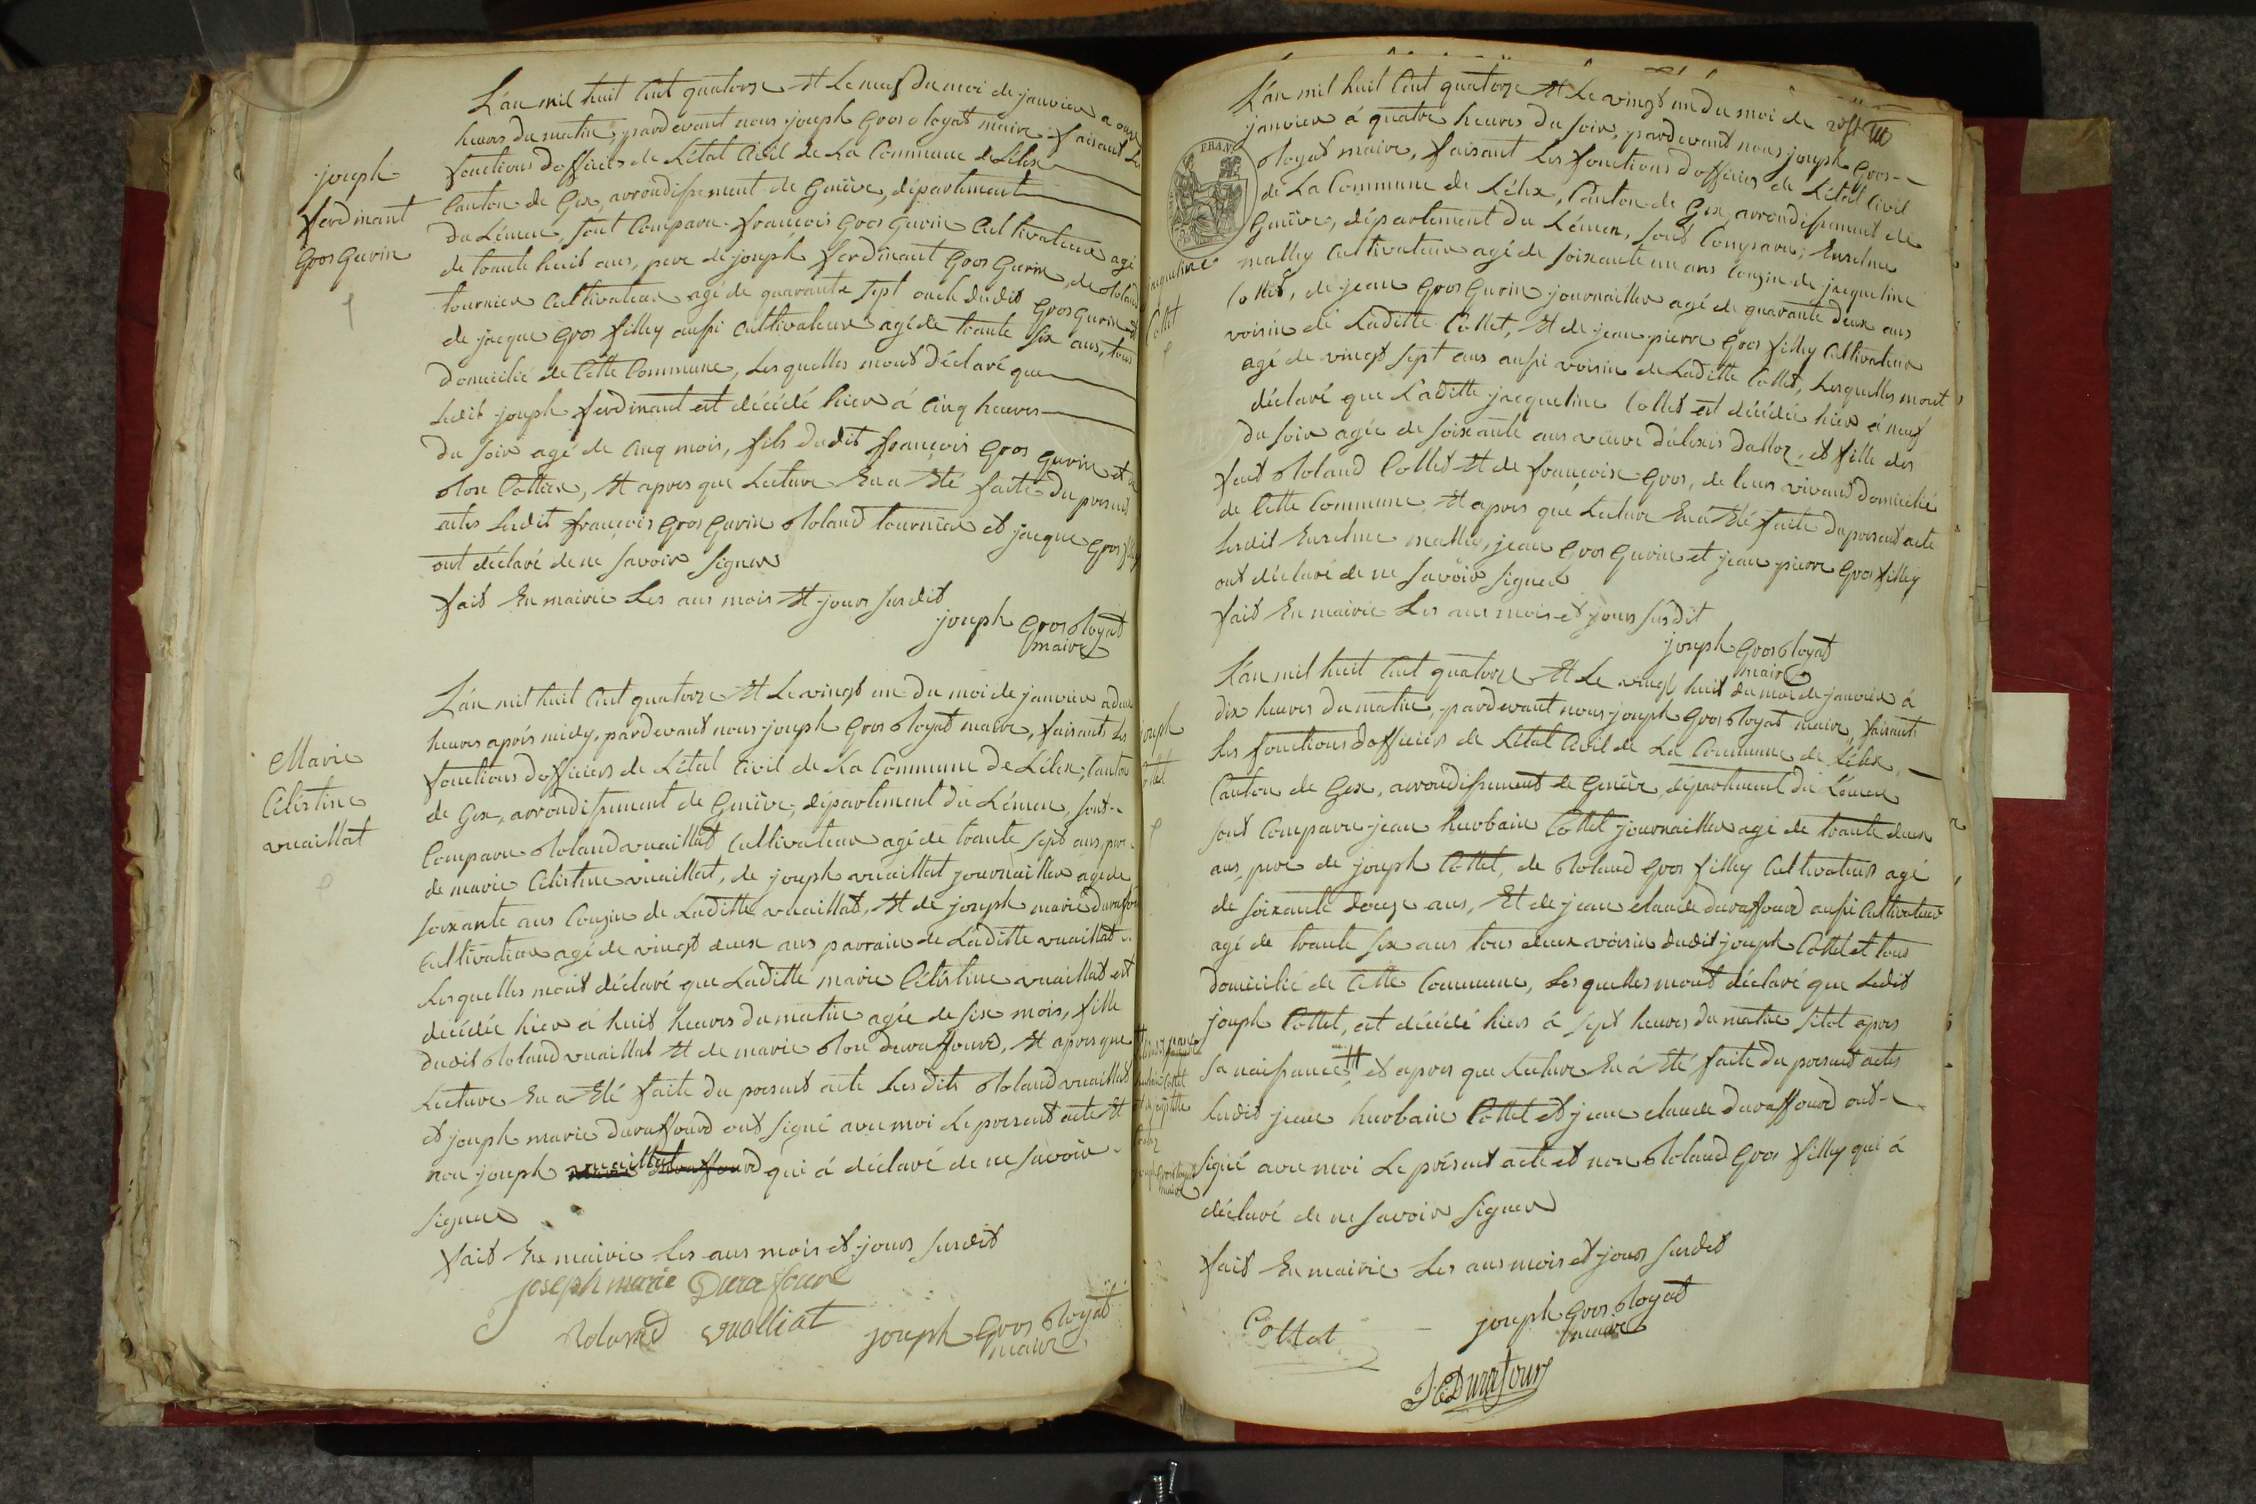 joseph
ferdinant
Gros Gurin
L'an mil huit Cent quatorze Et Le neuf du moi de janvier a onze
heures du matin, pardevant nous joseph Gros Royat maire, faisant Les
fonctions d'officier de L'état Civil de La Commune de Lélex
Canton de Gex, arrondissement de Genève, département
du Léman, sont Comparu françois Gros Gurin Cultivateur agé
de trante huit ans, pere de joseph ferdinant Gros Gurin, de Roland
tournier Cultivateur agé de quarante sept oncle dudit Gros Gurin et
de jacque Gros filley aussi Cultivateur agé de trante six ans, tous
domicilié de Cette Commune, Lesquelles mont déclaré que
Ledit joseph ferdinant est décédé hier à Cinq heures
du soir agé de Cinq mois, fils dudit françois Gros Gurin et de
Rose Cottier, Et apres que Lecture En a Eté faite du present
actes Ledit françois Gros Gurin Roland tournier et jacque Gros filley
ont déclaré de ne savoir signer
fait En mairie Les ans mois Et jours susdit
joseph Gros Royat
maire
Marie
Célestine
vuaillat
L'an mil huit Cent quatorze Et Le vingt un du moi de janvier a deux
heures après midy, pardevant nous joseph Gros Royat maire, faisants Les
fonctions d'officiers de L'état Civil de La Commune de Lélex, Canton
de Gex, arrondissement de Genève, département du Léman, sont
Comparu Roland vuaillat Cultivateur agé de trante sept ans, pere
de marie Célestine vuaillat, de joseph vuaillat journaillier agé de
soixante ans Cousin de Laditte vuaillat, Et de joseph marie duraffourd
Cultivateur agé de vingt deux ans parrain de Laditte vuaillat
Lesquelles mont déclaré que Laditte marie Célestine vuaillat est
décédée hier à huit heures du matin agée de six mois, fille
dudit Roland vuaillat Et de marie Rose duraffourd, Et apres que
Lecture En a Eté faite du present acte Lesdits Roland vuaillat
et joseph marie duraffourd ont signé avec moi Le present acte Et
non joseph vuaillat qui à déclaré de ne savoir
signer
fait En mairie Les ans mois et jours susdit
joseph marie Durafour
Roland vualliat
joseph Gros Royat
maire
FRAN
jacqueline
Collet
L'an mil huit Cent quatorze Et Le vingt un du moi de
janvier à quatre heures du soir, pardevant nous joseph Gros
Royat maire, faisant Les fonctions d'officier de L'état Civil
de La Commune de Lélex, Canton de Gex, arrondissement de
Genève, département du Léman, sont Comparu, Enselme
malley Cultivateur agé de soixante un ans Cousin de jacqueline
Collet, de jean Gros Gurin journaillier agé de quarante deux ans
voisin de Laditte Collet, Et de jean pierre Gros filley Cultivateur
agé de vingt sept ans aussi voisin de Laditte Collet, Lesquelles mont
déclaré que Laditte jacqueline Collet est décédée hier à neuf
du soir agée de soixante ans veuve d'alexis Dalloz, et fille des
feut Roland Collet Et de françoise Gros, de leurs vivant domicilié
de Cette Commune, Et apres que Lecture En à Eté faite du present acte
Lesdit Enselme malley, jean Gros Gurin et jean pierre Gros filley
ont déclaré de ne savoir signer
fait En mairie Les ans mois et jours susdit
joseph Gros Royat
maire
joseph
Cottet
L'an mil huit Cent quatorze Et Le vingt huit du moi de janvier à
dix heures du matin, pardevant nous joseph Gros Royat maire, faisants
Les fonctions d'officiers de L'état Civil de La Commune de Lélex,
Canton de Gex, arrondissement de Genève, département du Léman
sont Comparu jean hurbain Cottet journaillier agé de trante deux
ans, pere de joseph Cottet, de Roland Gros filley Cultivateur agé
de soixante douze ans, Et de jean claude duraffourd aussi Cultivateur
agé de trante six ans tous deux voisin dudit joseph Cottet et tous
domicilié de Cette Commune, Lesquelles mont déclaré que Ledit
joseph Cottet, est décédé hiers à sept heures du matin sitot apres
sa naissance # et apres que Lecture En à Eté faite du present actes
Ledit jean hurbain Cottet et jean claude duraffourd ont
signé avec moi Le présent acte et non Roland Gros filley qui à
déclaré de ne savoir signer
fait En mairie Les ans mois et jours susdit
Cottet
joseph Gros Royat
maire
JC Durafour